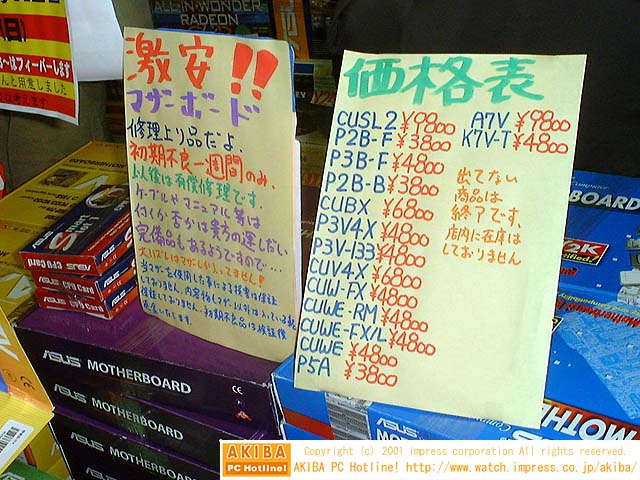 ALL-IN-WONDER
RADEON
(日)
〜はフィーバーします
んと用意しました
激安!!
マザーボード
修理上り品だよ.
初期不良一週間のみ.
以後は有償修理です.
ケーブルやマニュアル等は
付くか否かは貴方の運しだい
完備品もあるようですので…
価格表
CUSL2 ¥9800
P2B-F ¥3800
P3B-F ¥4800
P2B-B ¥3800
CUBX ¥6800
P3V4X ¥4800
P3V-133 ¥4800
CUV4X ¥6800
CUW-FX ¥4800
CUWE-RM ¥4800
CUWE-FX/L ¥4800
CUWE ¥4800
P5A ¥3800
A7V ¥9800
K7V-T ¥4800
出てない
商品は
終了です.
店内に在庫は
しておりません
ASUS
CPU Card ASUS
CPU Card ASUS
ASUS MOTHERBOARD
CE
ASUS MOTHERBOARD
ASUS MOTHERBOARD
BOARD
Y2K
MOTHERBOARD
AKIBA
PC Hotline!
Copyright (c) 2001 impress corporation All rights reserved.
AKIBA PC Hotline! http://www.watch.impress.co.jp/akiba/